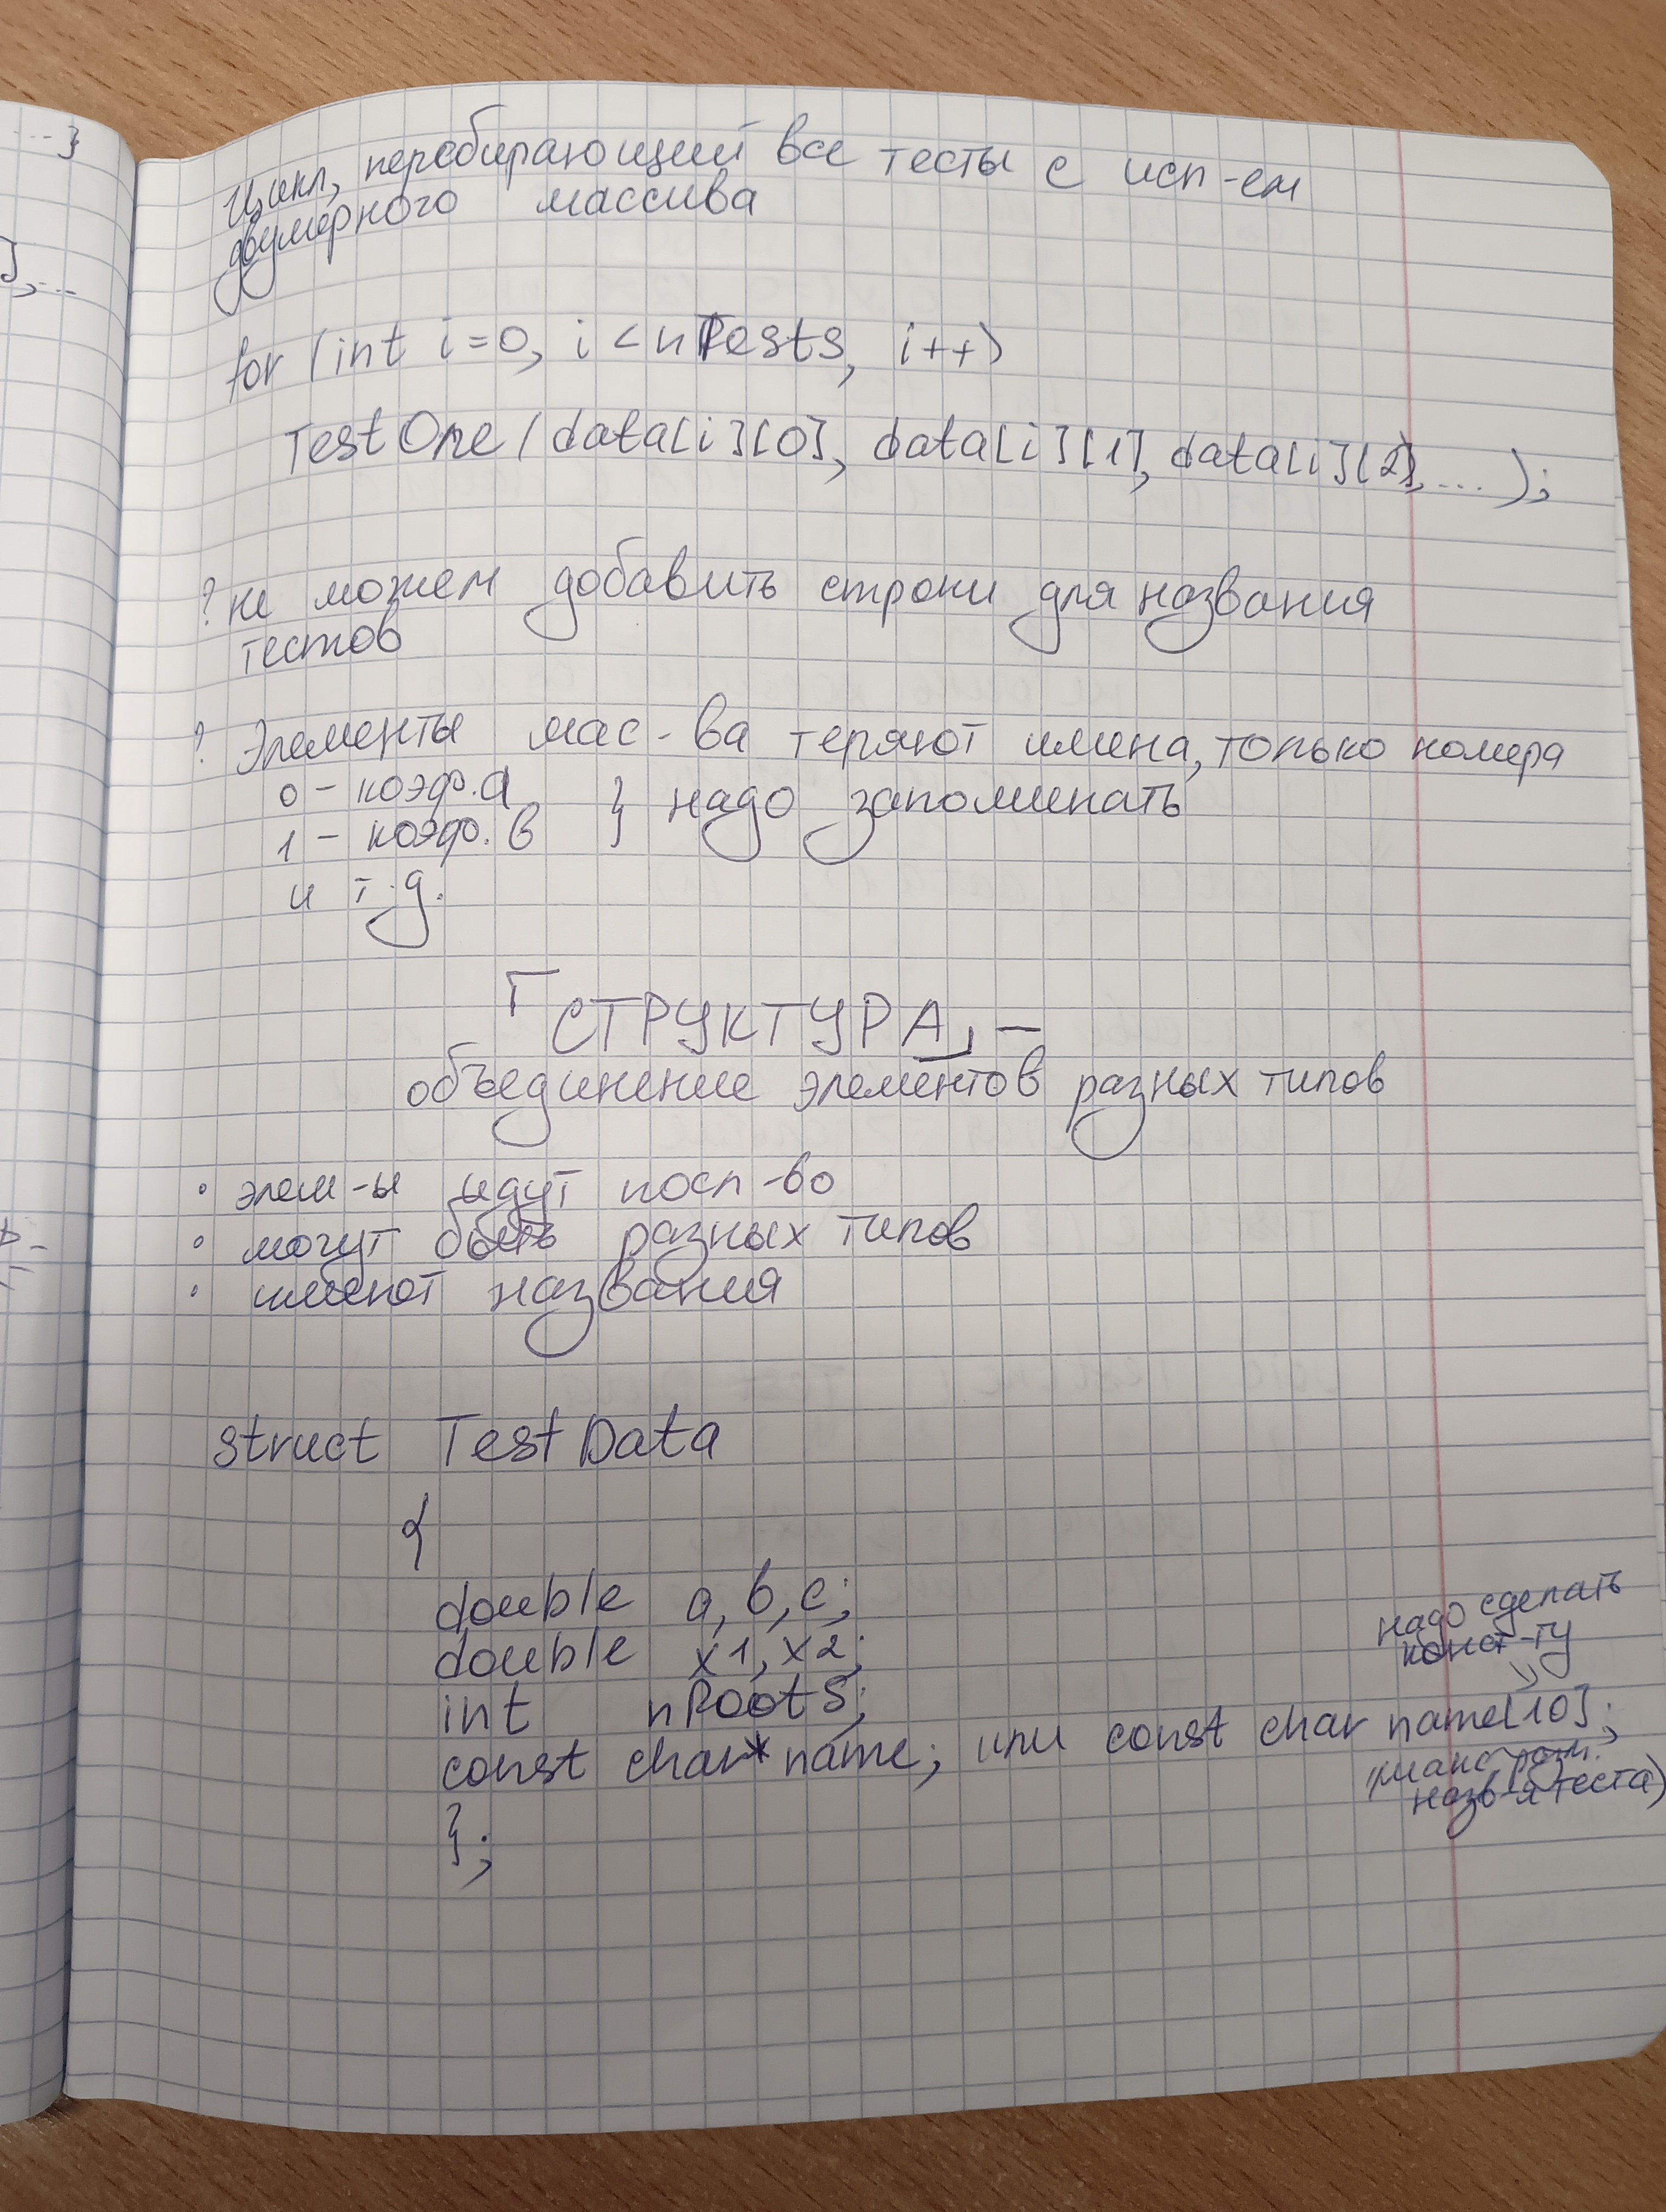 ...}
],...
Цикл, перебирающий все тесты с исп-ем
двумерного массива
for (int i=0, i<nTests, i++)
TestOne(data[i][0], data[i][1], data[i][2], ...);
? не можем добавить строки для названия
тестов
? Элементы мас-ва теряют имена, только номера
0 - коэф. a
1 - коэф. b } надо запоминать
и т.д.
СТРУКТУРА, —
объединение элементов разных типов
• элем-ы идут посл-во
• могут быть разных типов
• имеют названия
struct TestData
{
double a, b, c;
double x1, x2;
надо сделать
конст-ту
int nRoots;
const char* name; или const char name[10];
(макс. разм.
назв-я теста)
};